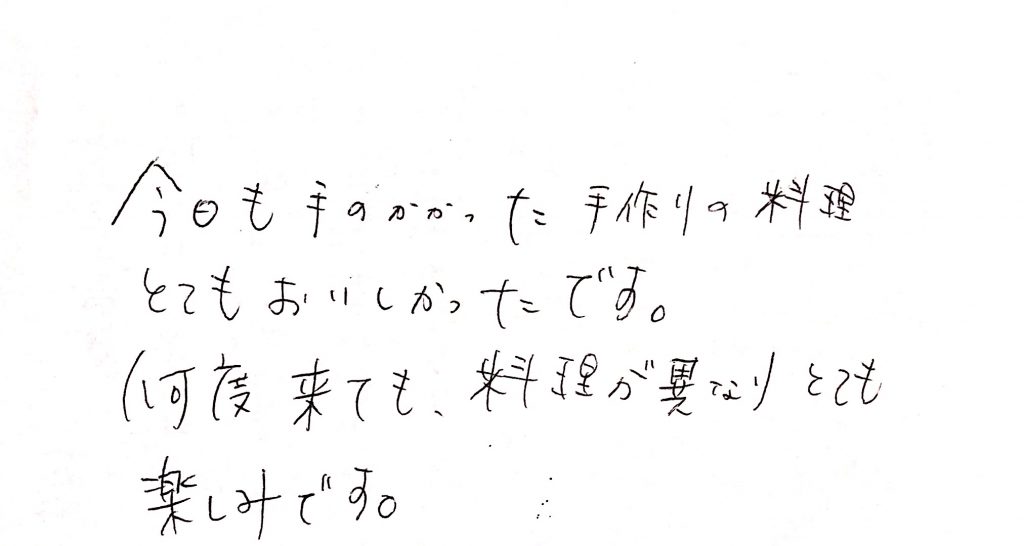 今日も手のかかった手作りの料理
とてもおいしかったです。
何度来ても、料理が異なりとても
楽しみです。